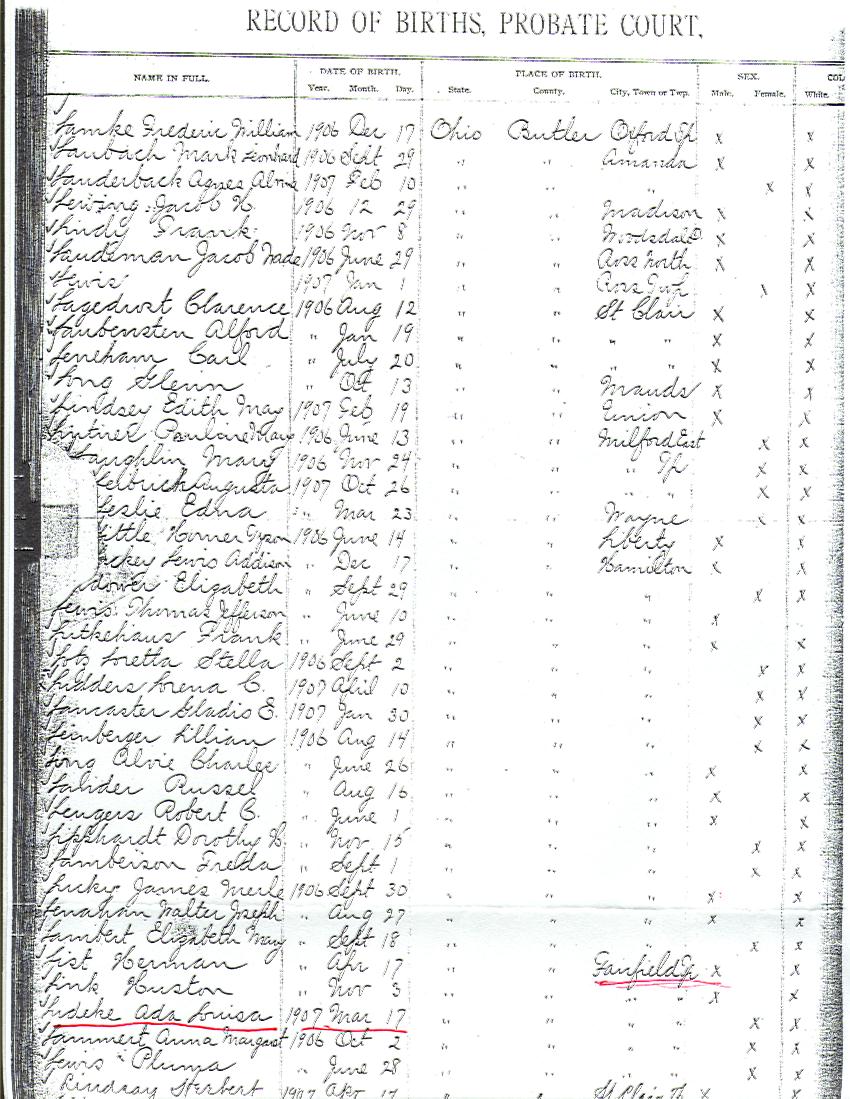 RECORD OF BIRTHS, PROBATE COURT,
NAME IN FULL. DATE OF BIRTH. PLACE OF BIRTH. SEX. COL
Year. Month. Day. State. County. City, Town or Twp. Male. Female. White.
Lamke Frederic William 1906 Dec 17 Ohio Butler Oxford Tp x x
Laubach Mark Leonhard 1906 Sept 29 " " Amanda x x
Lauderback Agnes Alma 1907 Feb 10 " " " x x
Jacob H. 1906 12 29 " " Madison x x
Lindy Frank 1906 Nov 8 " " Woodsdale x x
Laudeman Jacob Wade 1906 June 29 " " Ross North x x
Lewis 1907 Jan 1 " " Ross Twp x x
Lagedrost Clarence 1906 Aug 12 " " St Clair x x
Laubensten Alford " Jan 19 " " " " x x
Leneham Carl " July 20 " " " " x x
Long Glenn " Oct 13 " " Mauds x x
Lindsey Edith May 1907 Feb 19 " " Union x x
Lintner Pauline Mary 1906 June 13 " " Milford East x x
Laughlin Mary 1906 Nov 24 " " " Tp x x
Augusta 1907 Oct 26 " " " " x x
Leslie Edna " Mar 23 " " Wayne x x
Little Homer Tyson 1906 June 14 " " Liberty x x
Lewis Addison " Dec 17 " " Hamilton x x
Elizabeth " Sept 29 " " " x x
Lewis Thomas Jefferson " June 10 " " " x
Lutkehaus Frank " June 29 " " " x x
Lotz Loretta Stella 1906 Sept 2 " " " x x
Ludders Lorena C. 1907 April 10 " " " x x
Lancaster Gladis E. 1907 Jan 30 " " " x x
Leinberger Lillian 1906 Aug 14 " " " x x
Long Alvie Charles " June 26 " " " x x
Lander Russel " Aug 16 " " " x x
Leugers Robert C. " June 1 " " " x x
Lipphardt Dorothy H. " Nov 15 " " " x x
Lamberson Freda " Sept 1 " " " x x
Lucky James Merle 1906 Sept 30 " " " x x
Lenahan Walter Joseph " Aug 27 " " " x x
Lambert Elizabeth May " Sept 18 " " " x x
List Herman " Apr 17 " " Fairfield Tp x x
Link Huston " Nov 3 " " " " x x
Ludeke Ada Luisa 1907 Mar 17 " " " " x x
Lammert Anna Margast 1906 Oct 2 " " " " x x
Lewis Pluma " June 28 " " " " x x
Lindsay Herbert 1907 Apr 17 " " St Clair Tp x